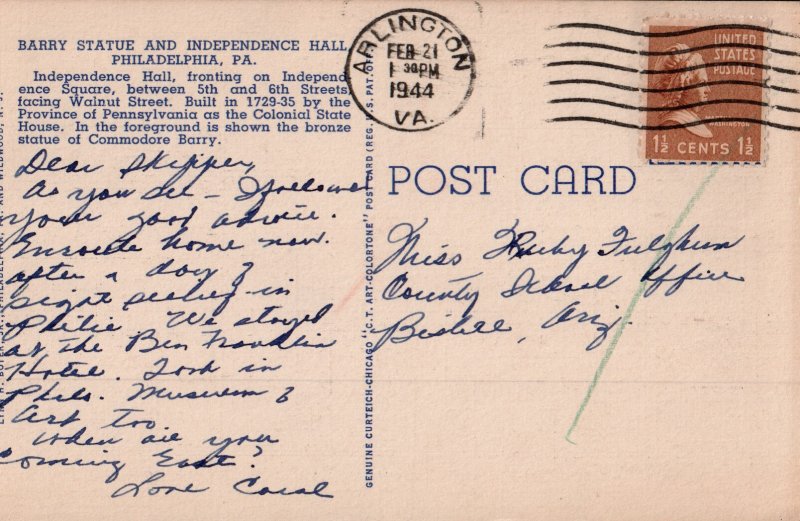 BARRY STATUE AND INDEPENDENCE HALL
PHILADELPHIA, PA.
Independence Hall, fronting on Independ
ence Square, between 5th and 6th Streets
facing Walnut Street. Built in 1729-35 by the
Province of Pennsylvania as the Colonial State
House. In the foreground is shown the bronze
statue of Commodore Barry.
Dear Skipper,
As you see - I followed
your good advice.
Enroute home now.
after a day of
sight seeing in
Philie. We stayed
at the Ben Franklin
Hotel. Took in
Phila. Museum of
Art too.
When are you
coming East?
Love Coral
GENUINE CURTEICH-CHICAGO "C.T. ART-COLORTONE" POST CARD (REG. U.S. PAT. OFF.
ARLINGTON
FEB 21
1 30 PM
1944
VA.
UNITED
STATES
POSTAGE
WASHINGTON
1½ CENTS 1½
POST CARD
Miss Ruby Fulghum
County School Office
Bisbee, Ariz.